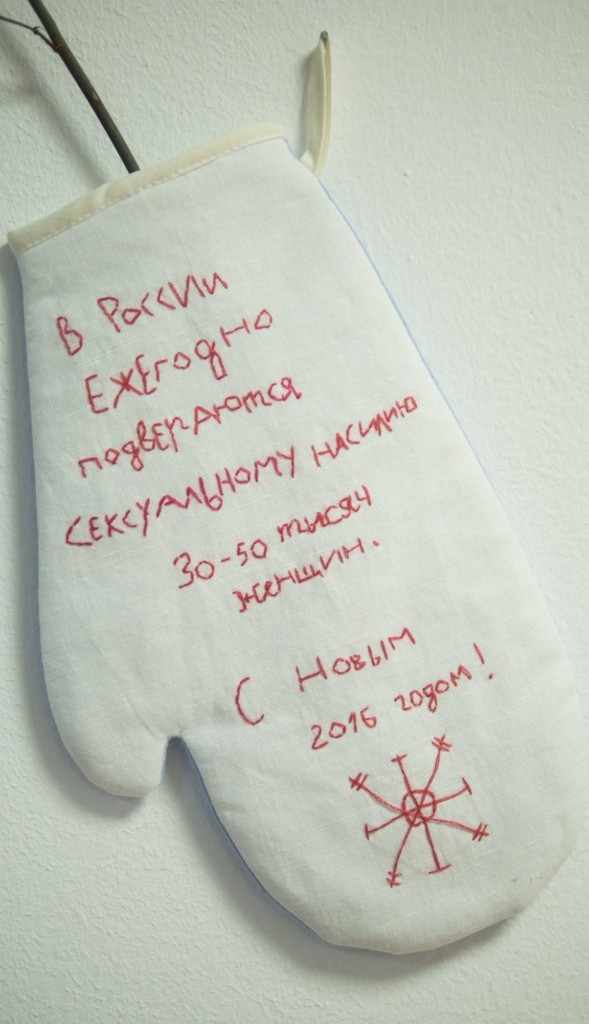 В России
ежегодно
подвергаются
сексуальному насилию
30-50 тысяч
женщин.
С Новым
2016 годом!